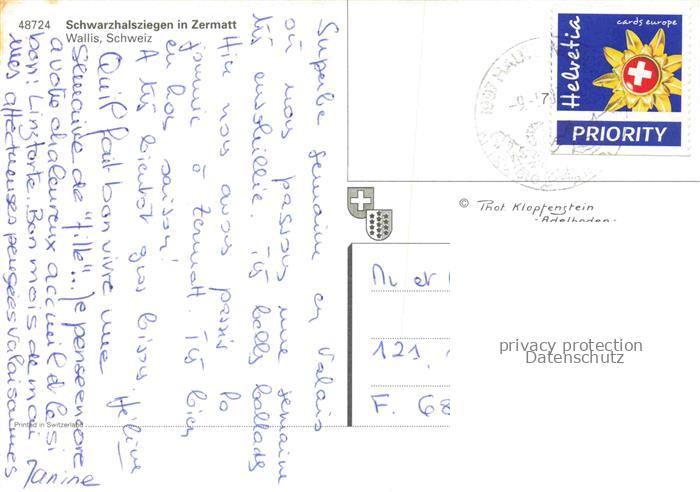 48724 Schwarzhalsziegen in Zermatt
Wallis, Schweiz
Superbe semaine en Valais
où nous passons une semaine
très ensoleillée. Très belles ballades
Hier nous avons passé la
journée à Zermatt. Très bien
en bas saison!
A très bientôt gros bisous. Hélène
Qu'il fait bon vivre une
semaine de "fille"... Je pense encore
a votre chaleureux accueil et la si
bon. Linstorte. Bon mois de mai
mes affectueuses pensées Valaisannes
Janine
Printed in Switzerland
cards europe
Helvetia
PRIORITY
© Phot Klopfenstein
Adelboden
M et
121,
F. 68
privacy protection
Datenschutz